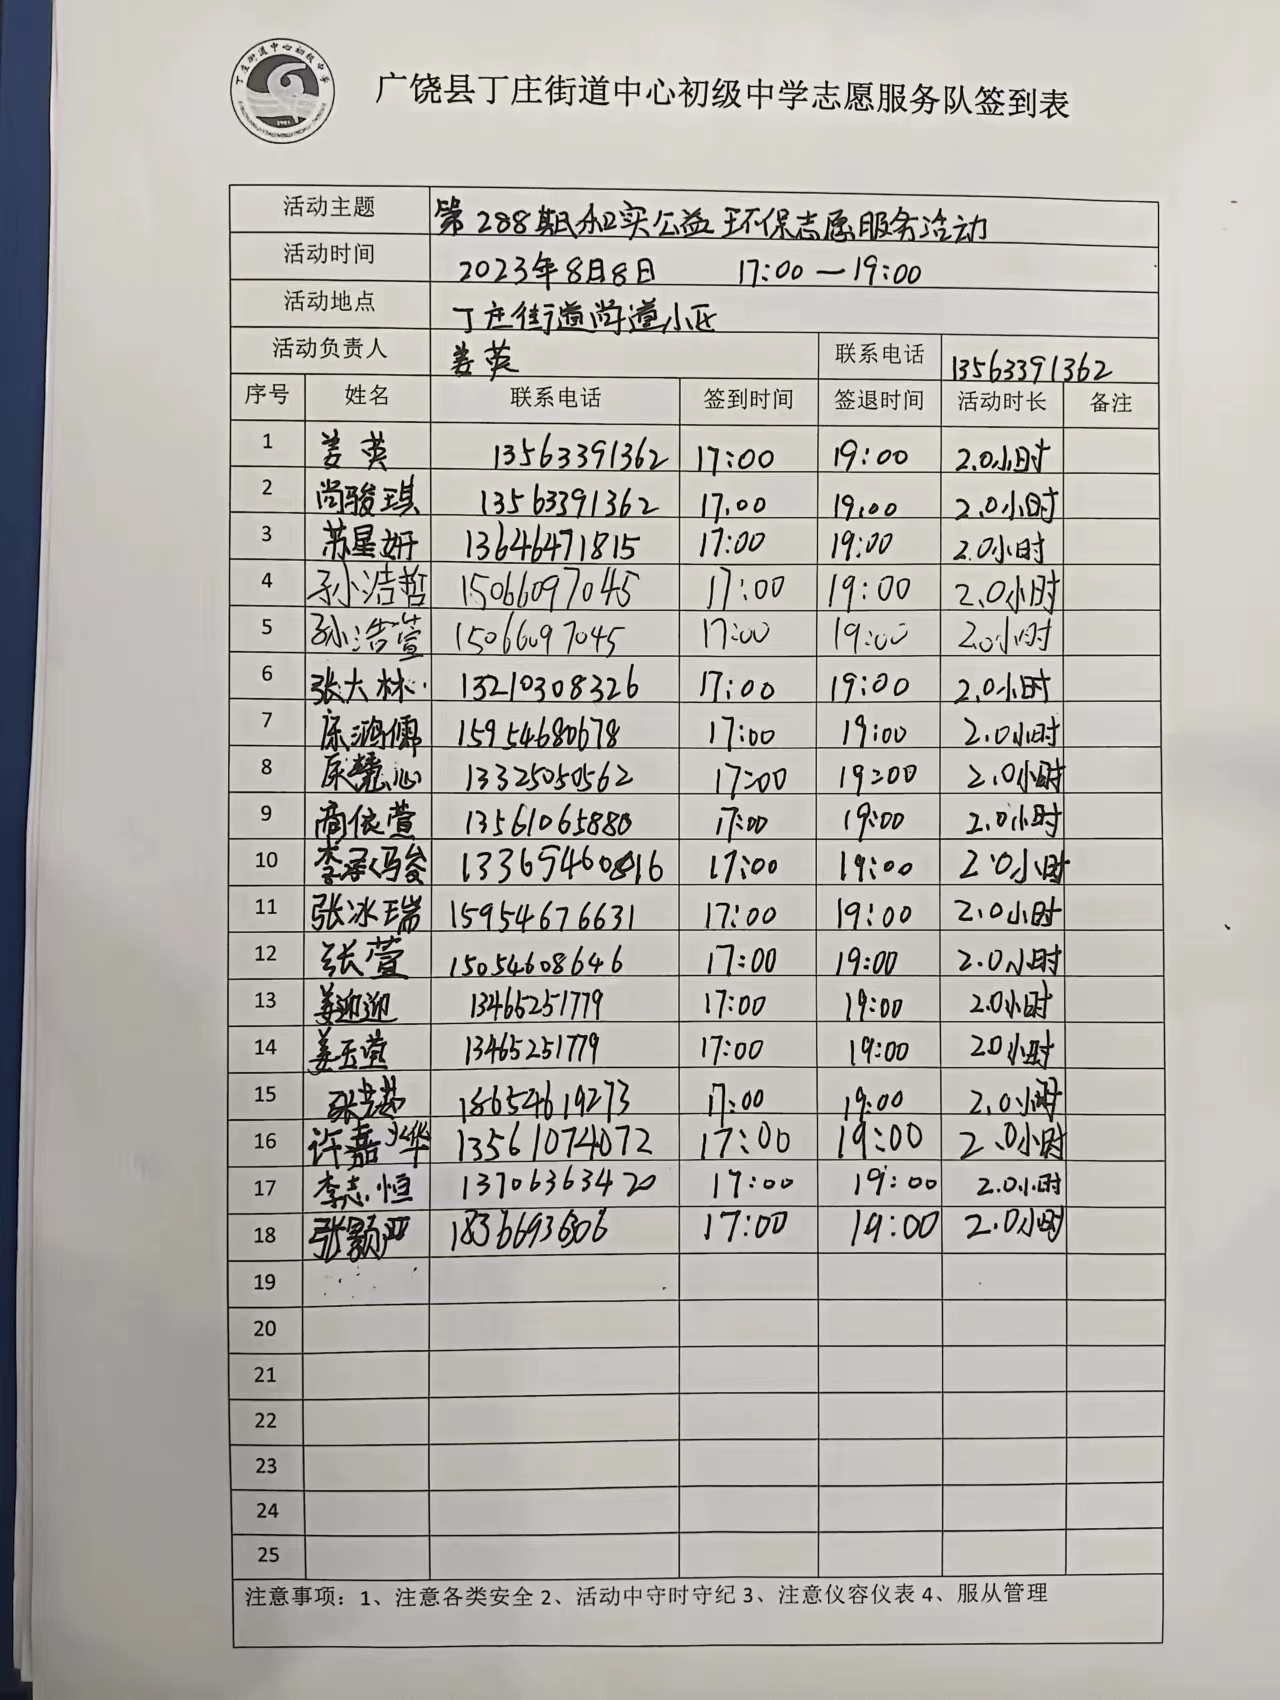 丁庄街道中心初级中学
广饶县丁庄街道中心初级中学志愿服务队签到表
活动主题 第288期民和实公益环保志愿服务活动
活动时间 2023年8月8日 17:00—19:00
活动地点 丁庄街道尚道小区
活动负责人 姜英 联系电话 13563391362
序号 姓名 联系电话 签到时间 签退时间 活动时长 备注
1 姜英 13563391362 17:00 19:00 2.0小时
2 尚骏琪 13563391362 17.00 19.00 2.0小时
3 苏星妍 13646471815 17:00 19:00 2.0小时
4 孙浩哲 15066097045 17:00 19:00 2.0小时
5 孙浩萱 15066097045 17:00 19:00 2.0小时
6 张大林 13210308326 17:00 19:00 2.0小时
7 康鸿儒 15954680678 17:00 19:00 2.0小时
8 康慧心 13325050562 17:00 19:00 2.0小时
9 商依萱 13561065880 17:00 19:00 2.0小时
10 李承骏 13369460816 17:00 19:00 2.0小时
11 张冰瑞 15954676631 17:00 19:00 2.0小时
12 张萱 15054608646 17:00 19:00 2.0小时
13 姜迎迎 13465251779 17:00 19:00 2.0小时
14 姜玉莹 13465251779 17:00 19:00 2.0小时
15 18654619273 17:00 19:00 2.0小时
16 许嘉华 13561074072 17:00 19:00 2.0小时
17 李志恒 13706363420 17:00 19:00 2.0小时
18 张颢严 1836693606 17:00 19:00 2.0小时
19
20
21
22
23
24
25
注意事项：1、注意各类安全 2、活动中守时守纪 3、注意仪容仪表 4、服从管理